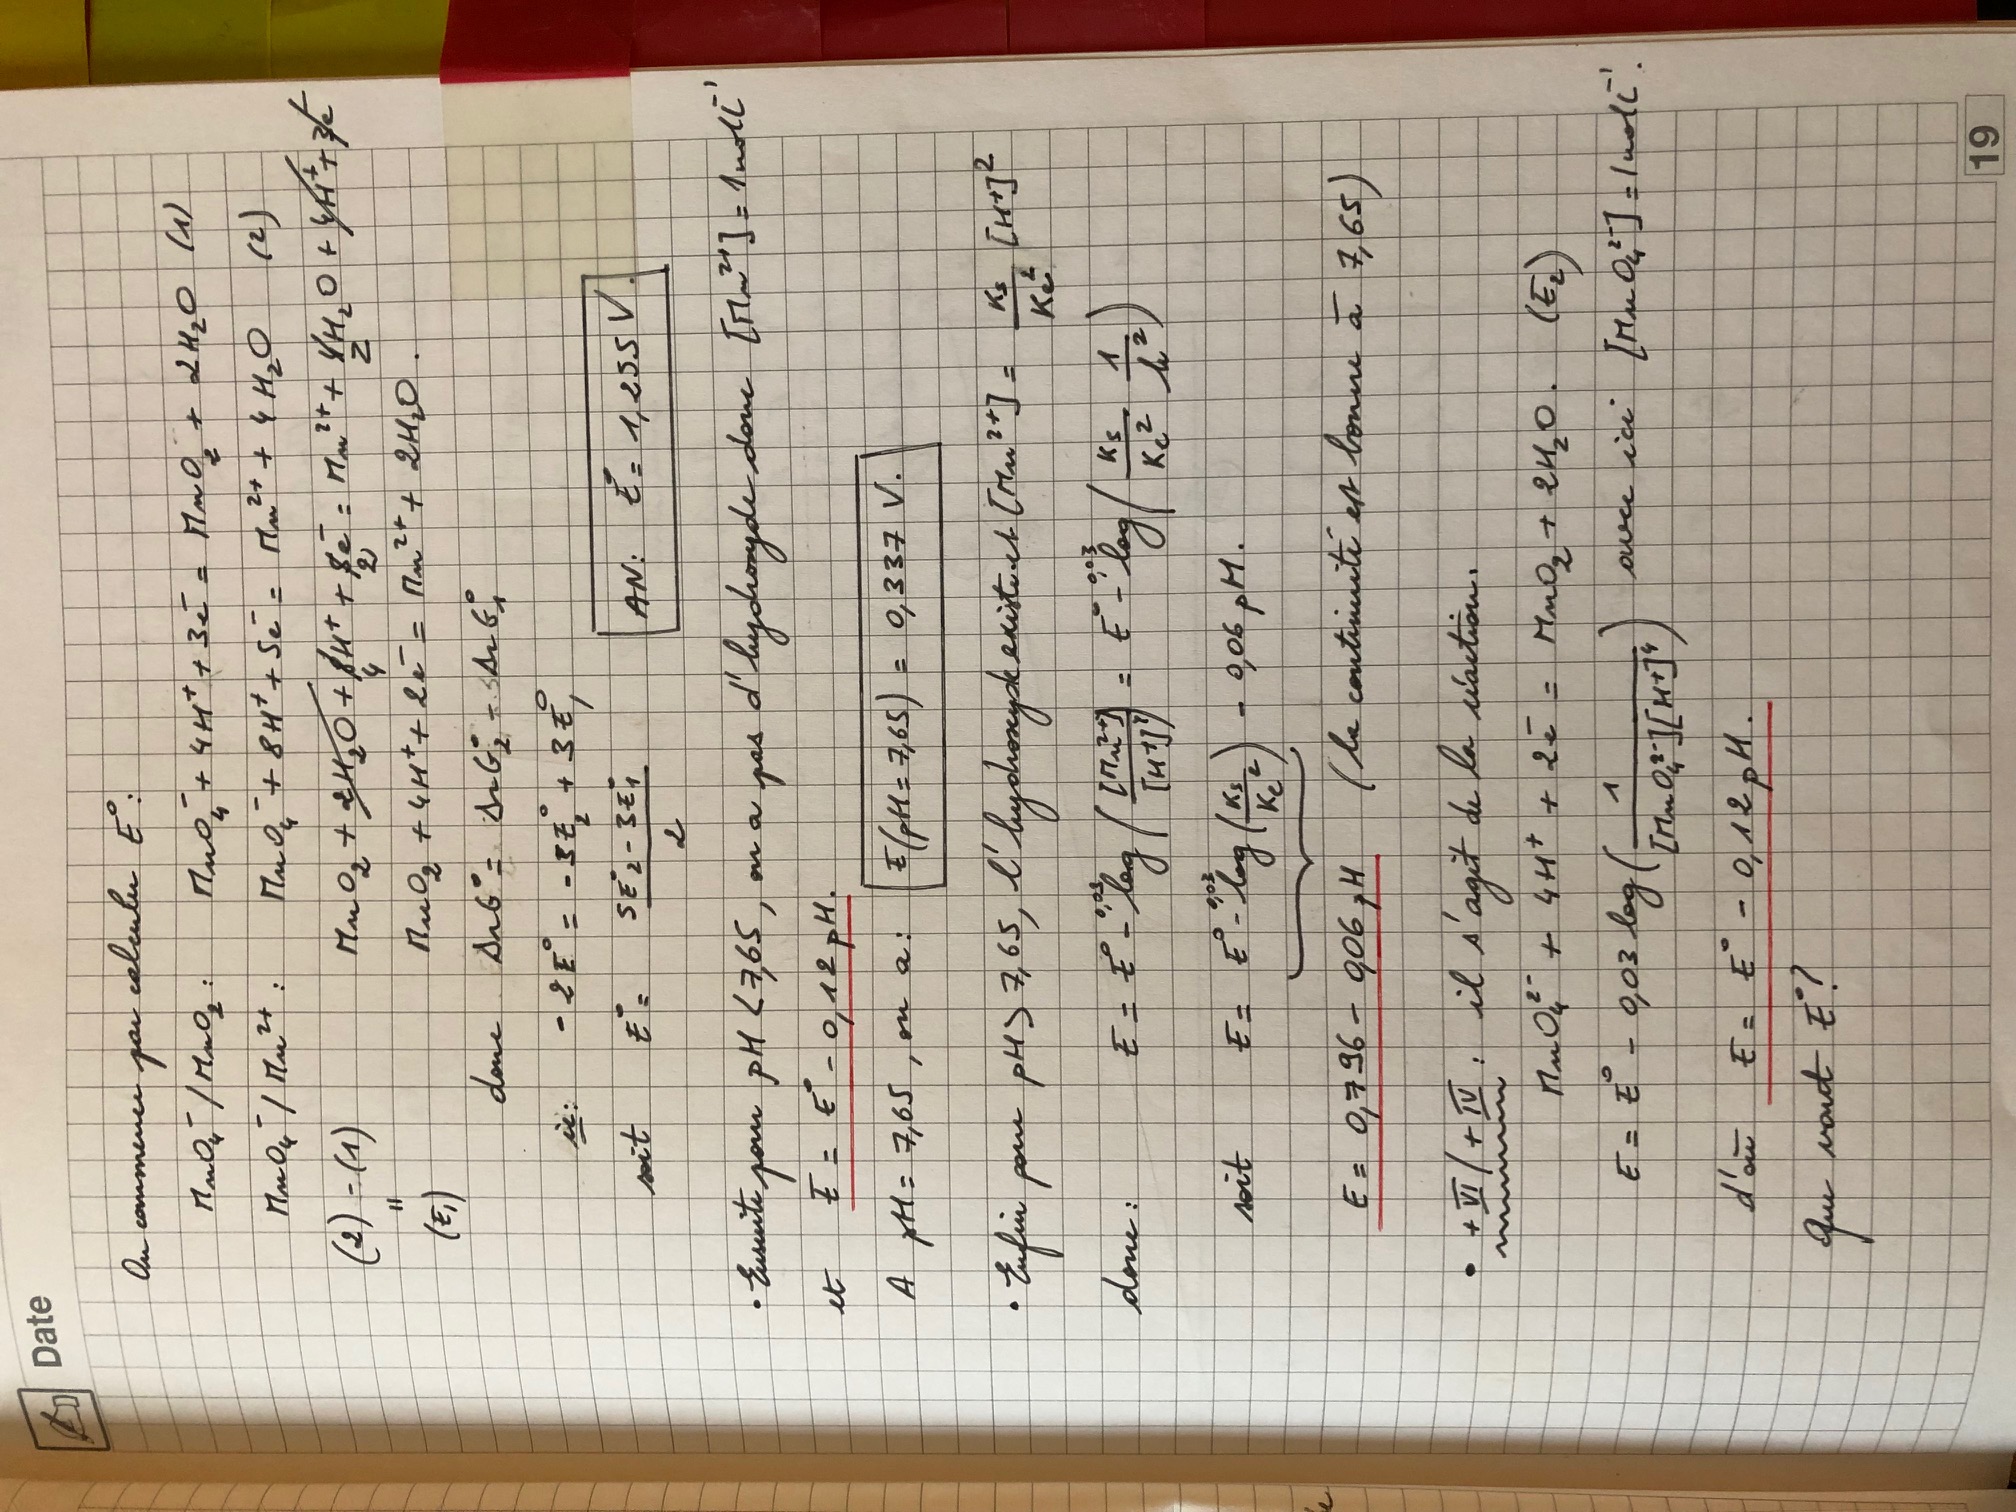 Date
On commence par calculer E° :
MnO₄⁻ / MnO₂ : MnO₄⁻ + 4H⁺ + 3e⁻ = MnO₂ + 2H₂O (1)
MnO₄⁻ / Mn²⁺ : MnO₄⁻ + 8H⁺ + 5e⁻ = Mn²⁺ + 4H₂O (2)
(2) - (1) MnO₂ + 2H₂O + 8H⁺ + 5e⁻ = Mn²⁺ + 4H₂O + 4H⁺ + 3e⁻
4 2 2
"
(E₁) MnO₂ + 4H⁺ + 2e⁻ = Mn²⁺ + 2H₂O.
donc ΔrG° = ΔrG₂° - ΔrG₁°
ie: -2E° = -5E₂° + 3E₁°
soit E° = (5E°₂ - 3E°₁)/2 AN: E° = 1,255 V.
• Ensuite pour pH < 7,65, on a pas d'hydroxyde donc [Mn²⁺] = 1 mol L⁻¹
et E = E° - 0,12 pH.
A pH = 7,65, on a : E(pH = 7,65) = 0,337 V.
• Enfin pour pH > 7,65, l'hydroxyde existe et [Mn²⁺] = Ks/Ke² [H⁺]²
donc : E = E° - 0,03 log([Mn²⁺]/[H⁺]⁴) = E° - 0,03 log(Ks/Ke² 1/h²)
soit E = E° - 0,03 log(Ks/Ke²) - 0,06 pH.
E = 0,796 - 0,06 pH (la continuité est bonne à 7,65)
• +VI / +IV : il s'agit de la réaction.
MnO₄²⁻ + 4H⁺ + 2e⁻ = MnO₂ + 2H₂O. (E₂)
E = E° - 0,03 log(1/([MnO₄²⁻][H⁺]⁴)) avec ici [MnO₄²⁻] = 1 mol L⁻¹.
d'où E = E° - 0,12 pH.
Que vaut E° ?
19